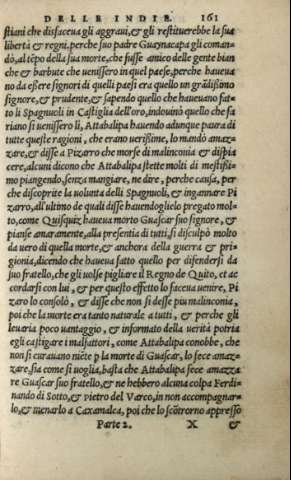 DELLE INDIE. 161
stiani che disfaceua gli aggraui, & gli restituirebbe la sua
libertà & regni, perche suo padre Guaynacapa gli coman
dò, al tẽpo della sua morte, che fusse amico delle gente bian
che & barbute che uenissero in quel paese, perche haueua
no da essere signori di quelli paesi era quello un grãdißimo
signore, & prudente, & sapendo quello che haueuano fat-
to li Spagnuoli in Castiglia dell'oro, indouinò quello che fa
riano si uenissero lì, Attabalipa hauendo adunque paura di
tutte queste ragioni, che erano uerißime, lo mandò amaz-
zare, & disse a Pizarro che morse di malinconia & dispia
cere, alcuni dicono che Attabalipa stette molti dì mestißi-
mo piangendo, senza mangiare, ne dire, perche causa, per
che discoprite la uolunta delli Spagnuoli, & ingannare Pi
zarro, all'ultimo de quali disse hauendoglielo pregato mol-
to, come Quisquiz haueua morto Guascar suo signore, &
pianse amaramente, alla presentia di tutti, si disculpò molto
da uero di quella morte, & anchora della guerra & pri-
gionia, dicendo che haueua fatto quello per difendersi da
suo fratello, che gli uolse pigliare il Regno de Quito, et ac
cordarsi con lui, & per questo effetto lo faceua uenire, Pi
zaro lo consolò, & disse che non si desse piu malinconia,
poi che la morte era tanto naturale a tutti, & perche gli
leuaria poco uantaggio, & informato della uerità potria
egli castigare i malfattori, come Attabalipa conobbe, che
non si curauano niẽte p la morte di Guascar, lo fece amaz-
zare, sia come si uoglia, basta che Attabalipa fece amazza
re Guascar suo fratello, & ne hebbero alcuna colpa Ferdi-
nando di Sotto, & Pietro del Varco, in non accompagnar-
lo, & menarlo a Caxamalca, poi che lo scõtrorno appresso
Parte 2. X &